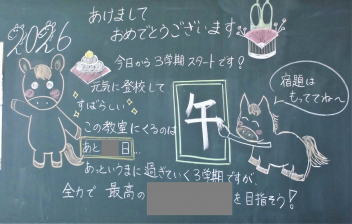 2026
あけまして
おめでとうございます
今日から3学期スタートです!
元気に登校して
すばらしい
この教室にくるのは
あと 日…
午
宿題は
もってきてね〜
あっというまに過ぎていく3学期ですが、
全力で 最高の を目指そう!